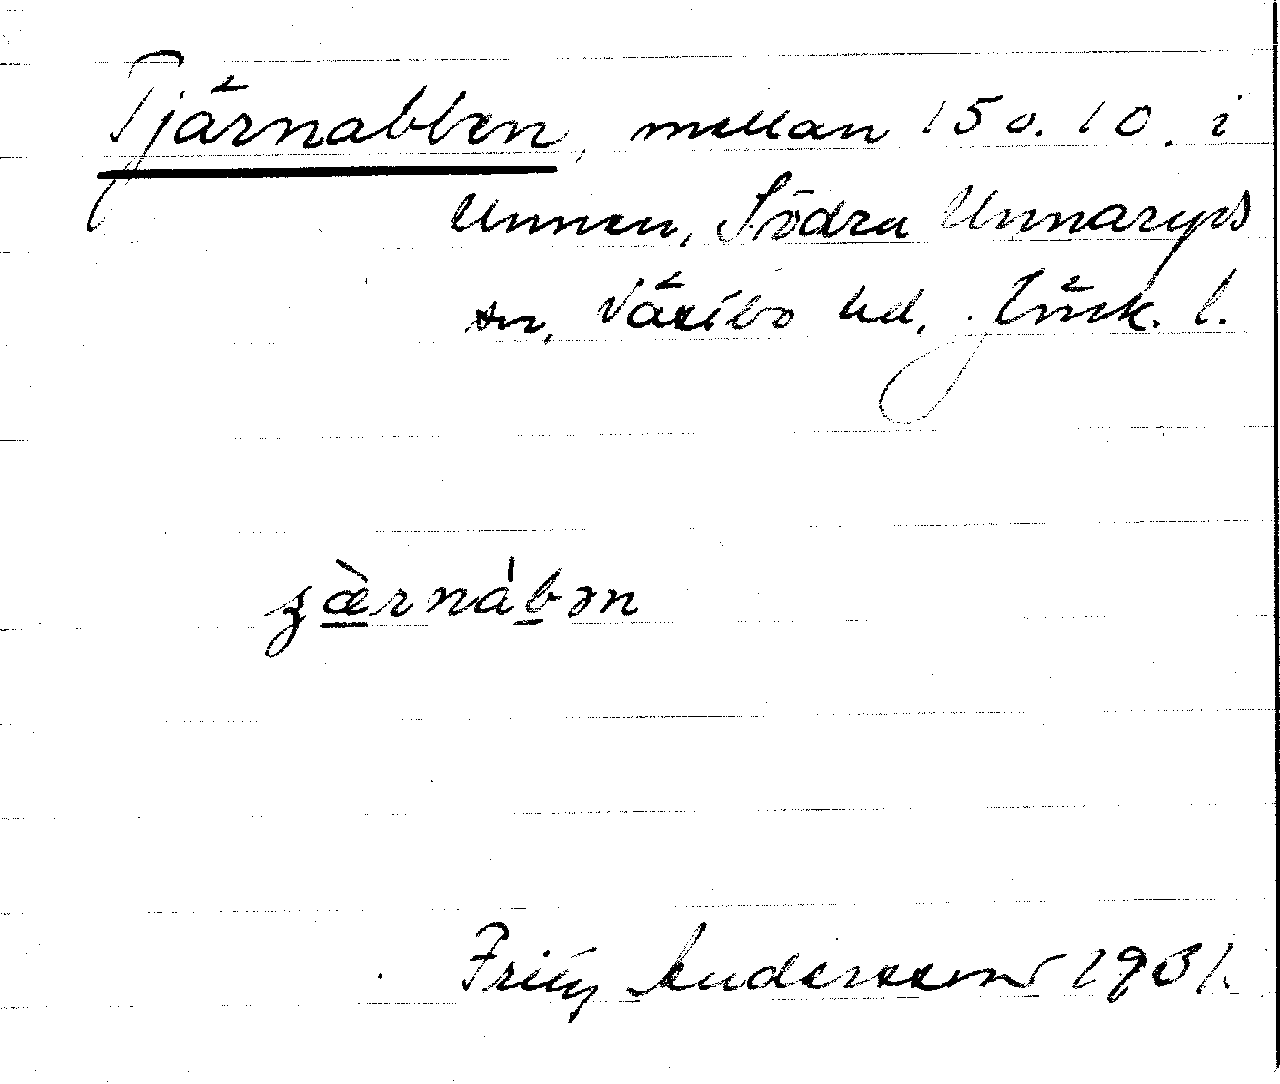 Tjärnabben, mellan 15 o. 10. i
Unnen, Södra Unnaryds
sn, Västbo hd, Jönk. l.
ʒæ̀rnàbən
Fritz Andersson 1931.